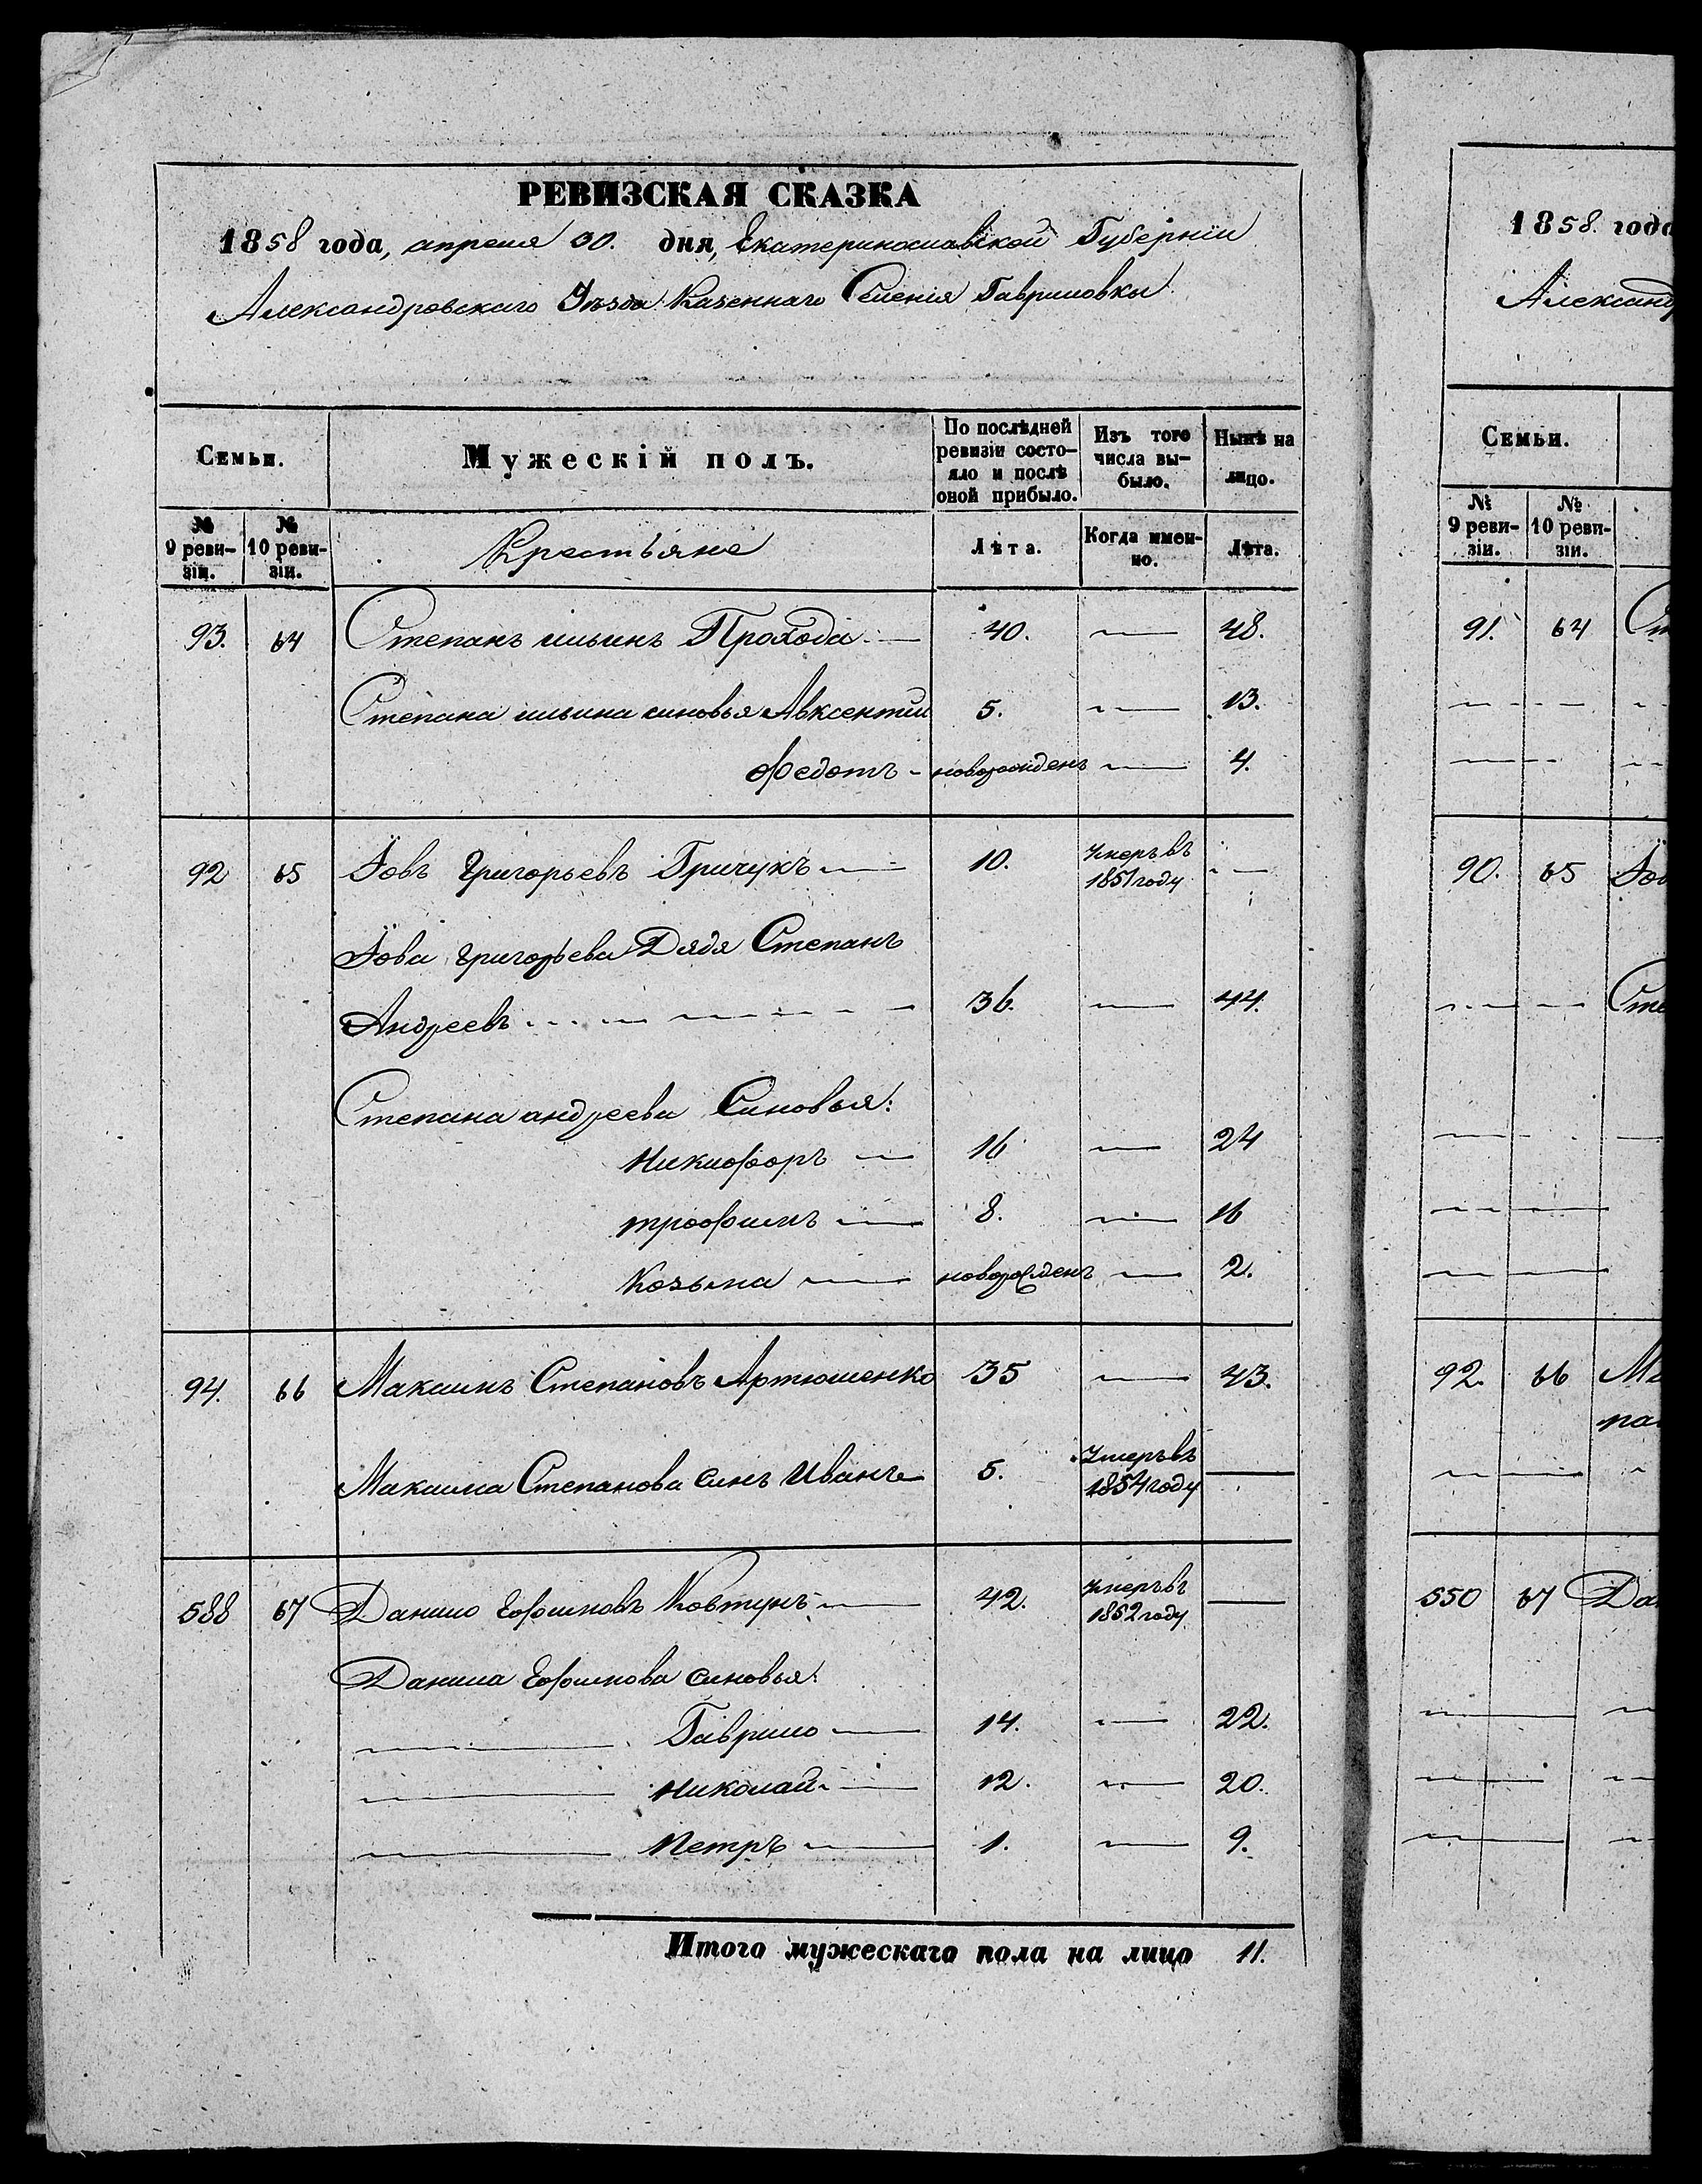 РЕВИЗСКАЯ СКАЗКА
1858 года, апреля 30. дня, Екатеринославской Губерніи
Александровскаго Уѣзда Казеннаго Селенія Гавриловки
Семьи. Мужескій полъ. По послѣдней ревизіи состояло и послѣ оной прибыло. Изъ того числа выбыло. Нынѣ на лицо.
№ 9 ревизіи. № 10 ревизіи. Крестьяне Лѣта. Когда именно. Лѣта.
93. 64 Степанъ ильинъ Прохода — 40. — 48.
Степана ильина синовья Авксентій 5. — 13.
Федотъ - новорожденъ — 4.
92 65 Іовъ Григорьевъ Гричукъ — 10. Умеръ въ 1851 году —
Іова григорьева Дядя Степанъ
Андреевъ — 36. — 44.
Степана андреева Синовья:
Никифоръ — 16 — 24
трофимъ — 8. — 16
Козьма — новорожденъ — 2.
94. 66 Максимъ Степановъ Артюшенко 35 — 43.
Максима Степанова синъ Иванъ 5. Умеръ въ 1854 году —
588 67 Данило Ефимовъ Ковтунъ — 42. Умеръ въ 1852 году —
Данила Ефимова синовья:
— Гаврило — 14. — 22.
— Николай — 12. — 20.
— Петръ — 1. — 9.
Итого мужескаго пола на лицо 11.
1858. года
Александ
Семьи.
№ 9 ревизіи. № 10 ревизіи.
91. 64 Ст
90. 65 Іов
Сте
92. 66 Ма
па
550 67 Да